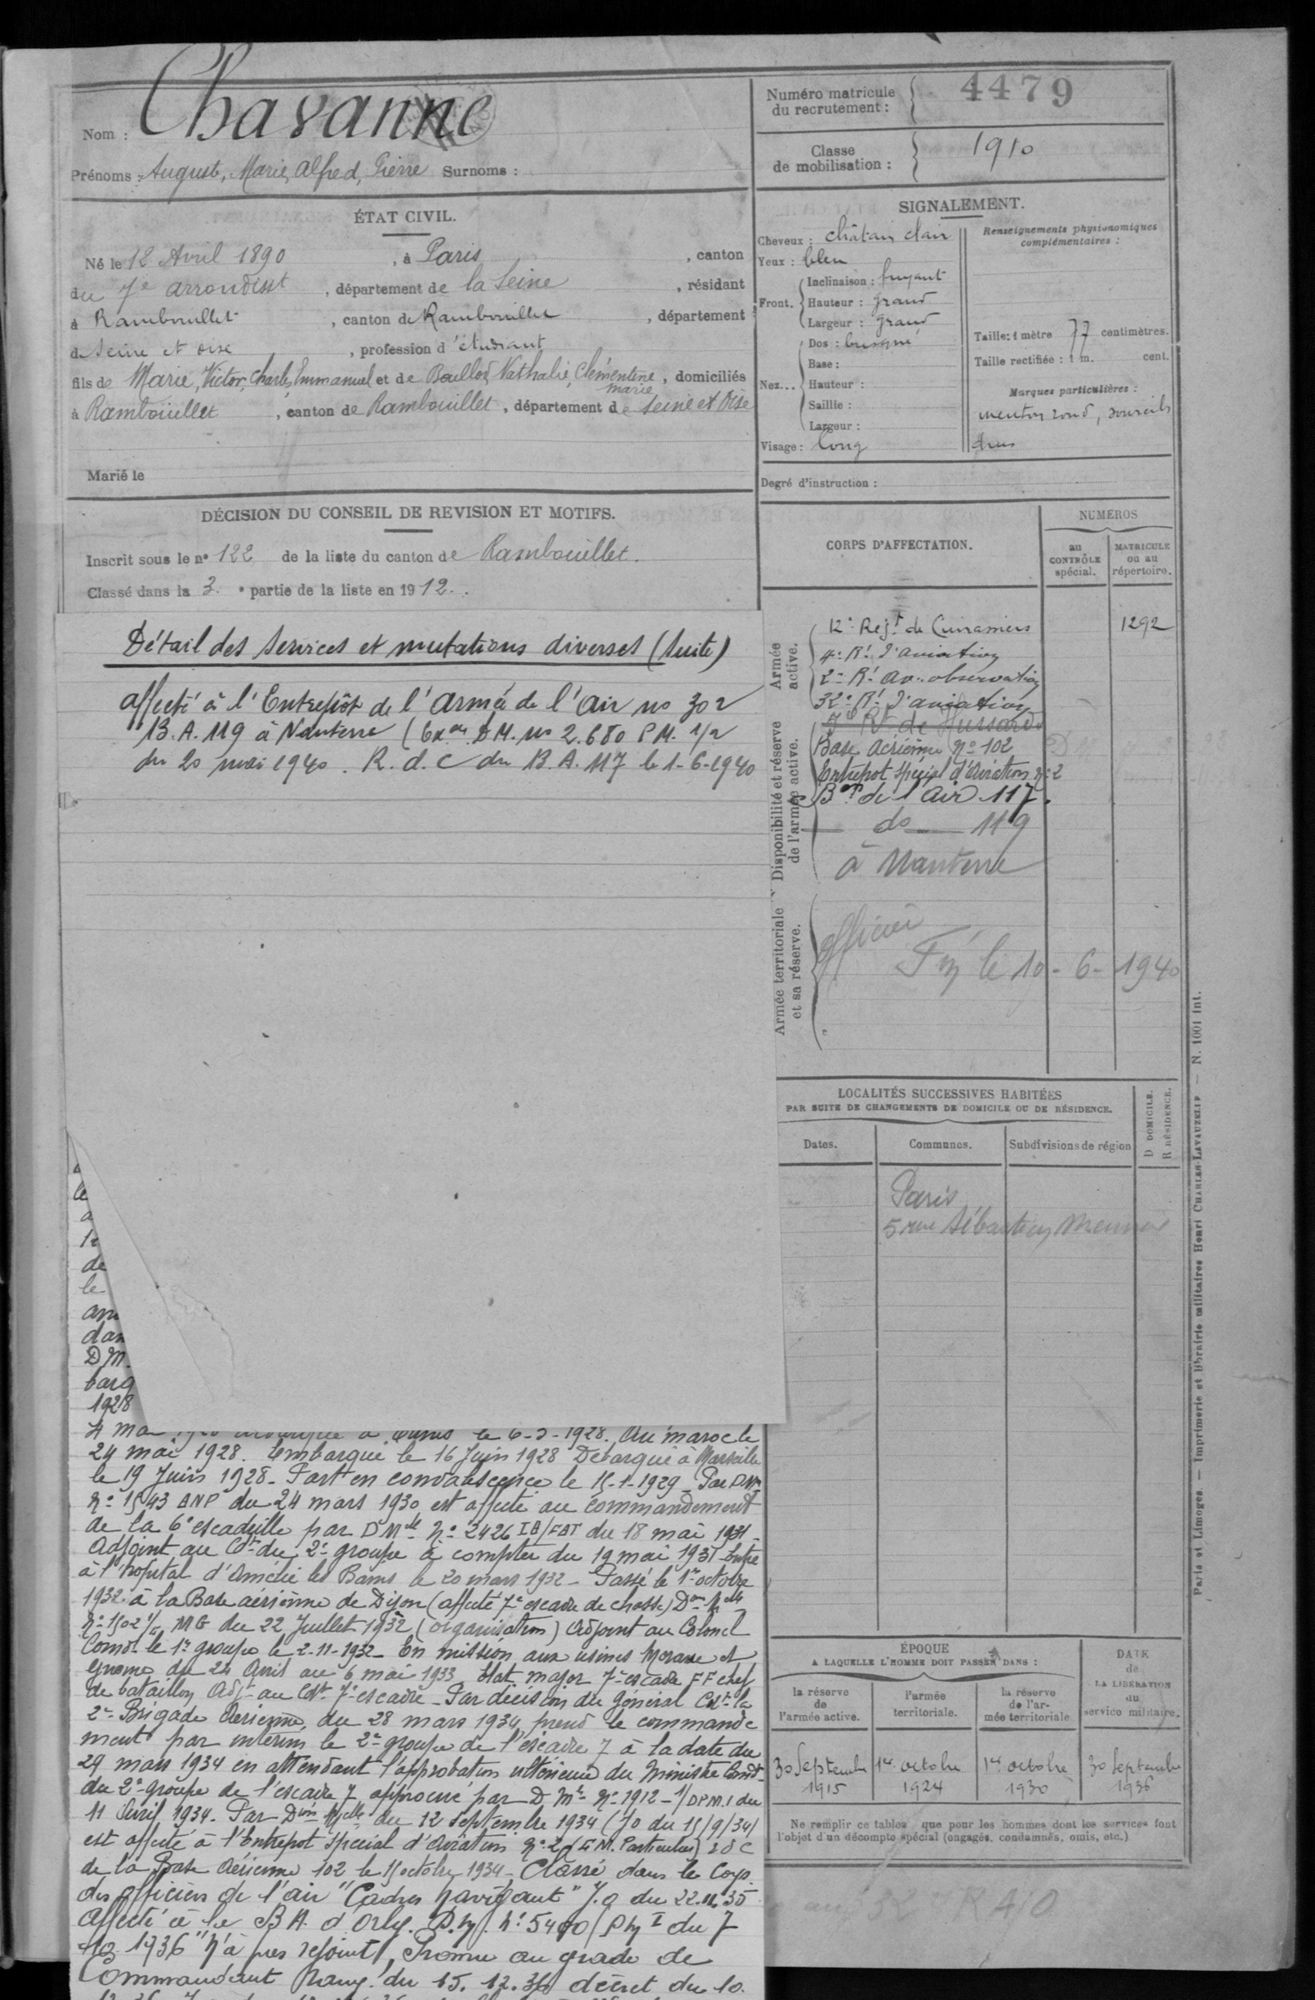 Nom : Chavanne
Prénoms : Auguste, Marie, Alfred, Pierre Surnoms :
Numéro matricule du recrutement : 4479
Classe de mobilisation : 1910
ÉTAT CIVIL.
Né le 12 Avril 1890, à Paris, canton
du 7e arrondisst, département de la Seine, résidant
à Rambouillet, canton de Rambouillet, département
de Seine et oise, profession d'étudiant
fils de Marie, Victor, Charles, Emmanuel et de Nathalie, Clémentine, marie, domiciliés
à Rambouillet, canton de Rambouillet, département de Seine et Oise
Marié le
SIGNALEMENT.
Cheveux : châtain clair
Yeux : bleu
Front. Inclinaison : fuyant
Hauteur : grand
Largeur : grand
Nez... Dos : busqué
Base :
Hauteur :
Saillie :
Largeur :
Visage : long
Renseignements physionomiques complémentaires :
Taille : 1 mètre 77 centimètres.
Taille rectifiée : 1 m. cent.
Marques particulières :
menton rond, sourcils
drus
Degré d'instruction :
DÉCISION DU CONSEIL DE REVISION ET MOTIFS.
Inscrit sous le n° 122 de la liste du canton de Rambouillet.
Classé dans la 3e partie de la liste en 1912.
Détail des Services et mutations diverses (Suite)
affecté à l'Entrepôt de l'Armée de l'Air no 302
B.A. 119 à Nanterre ( D.M. no 2.680 P.M. 1/2
du 20 mai 1940. R.d.c du B.A. 117 le 1-6-1940
CORPS D'AFFECTATION.
NUMÉROS
au CONTRÔLE spécial.
MATRICULE ou au répertoire.
Armée active.
12e Regt de Cuirassiers 1292
4e Rt d'aviation
2e Rt av. observation
32e Rt d'aviation
Disponibilité et réserve de l'armée active.
Rt de Hussards
Base Aérienne N° 102
Entrepot Spécial d'Aviation n° 2
Bon de l'Air 117.
do 119
à Nanterre
Armée territoriale et sa réserve.
officier
le 10-6-1940
LOCALITÉS SUCCESSIVES HABITÉES
PAR SUITE DE CHANGEMENTS DE DOMICILE OU DE RÉSIDENCE.
Dates. Communes. Subdivisions de région
D DOMICILE.
R RÉSIDENCE.
Paris
5 rue Sébastien Mercier
le
a
de
le
D.M.
1928
le 6-5-1928. Au maroc le
24 mai 1928. Embarqué le 16 Juin 1928 Débarqué à Marseille
le 19 Juin 1928. Part en convalescence le 15-1-1929 Par D.M.
N° 1543 BNP du 24 mars 1930 est affecté au commandement
de la 6e escadrille par D Mlle N° 2426 IB/FBT du 18 mai 1931.
Adjoint au Ct du 2e groupe à compter du 19 mai 1931 Entré
à l'hopital d'Amélie les Bains le 20 mars 1932 - Passé le 1er octobre
1932 à la Base aérienne de Dijon (affecté 7e escadre de chasse) Don Mlle
N° 1502 MG du 22 Juillet 1932 (organisation) Adjoint au Colonel
Comdt le 1er groupe le 2-11-1932 - En mission aux usines Morane et
Gnome du 24 Avril au 6 mai 1933 Etat major 7e escadre FF chef
de bataillon Adjt au Cdt 7e escadre - Par décision du Général Cdt la
2e Brigade Aérienne, du 28 mars 1934 prend le commande
ment par intérim le 2e groupe de l'escadre 7 à la date du
29 mars 1934 en attendant l'approbation ultérieure du Ministre Comdt
du 2e groupe de l'escadre 7, approuvé par D Mle N° 1912-1/D.P.M.1 du
11 Avril 1934. Par Don Mlle du 12 Septembre 1934 (Jo du 15/9/34)
est affecté à l'Entrepot spécial d'Aviation N° 2 (E.M. Particulier) r d c
de la Base Aérienne 102 le 15 octobre 1934. Classé dans le Corps
des officiers de l'air "Cadres navigant" J.o du 22.11.35
Affecté à la B A. d'Orly. D.M. N° 5400/PM I du 7
1936 "N'a pas rejoint", Promu au grade de
Commandant du 15.12.36 décret du 10.
ÉPOQUE
A LAQUELLE L'HOMME DOIT PASSER DANS :
la réserve de l'armée active.
l'armée territoriale.
la réserve de l'armée territoriale
DATE de LA LIBÉRATION du service militaire.
30 Septembre 1915
1er octobre 1924
1er octobre 1930
30 Septembre 1936
Ne remplir ce tableau que pour les hommes dont les services font
l'objet d'un décompte spécial (engagés, condamnés, omis, etc.)
Paris et Limoges. — Imprimerie et librairie militaires Henri CHARLES-LAVAUZELLE — N. 1001 int.